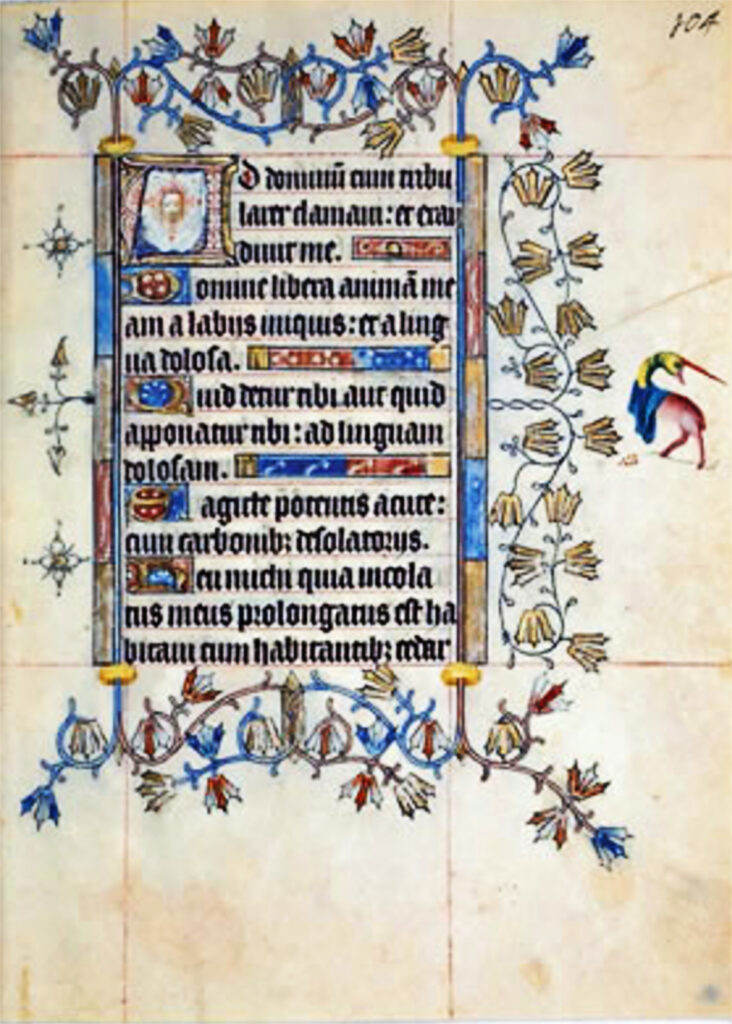 104
Ad dominū cum tribu
larer clamaui: et exau
diuit me.
Domine libera animā me
am a labiis iniquis: et a ling
ua dolosa.
Quid detur tibi aut quid
apponatur tibi: ad linguam
dolosam.
Sagitte potentis acute:
cum carbonib; desolatoriis.
Heu michi quia incola
tus meus prolongatus est ha
bitaui cum habitantib; cedar